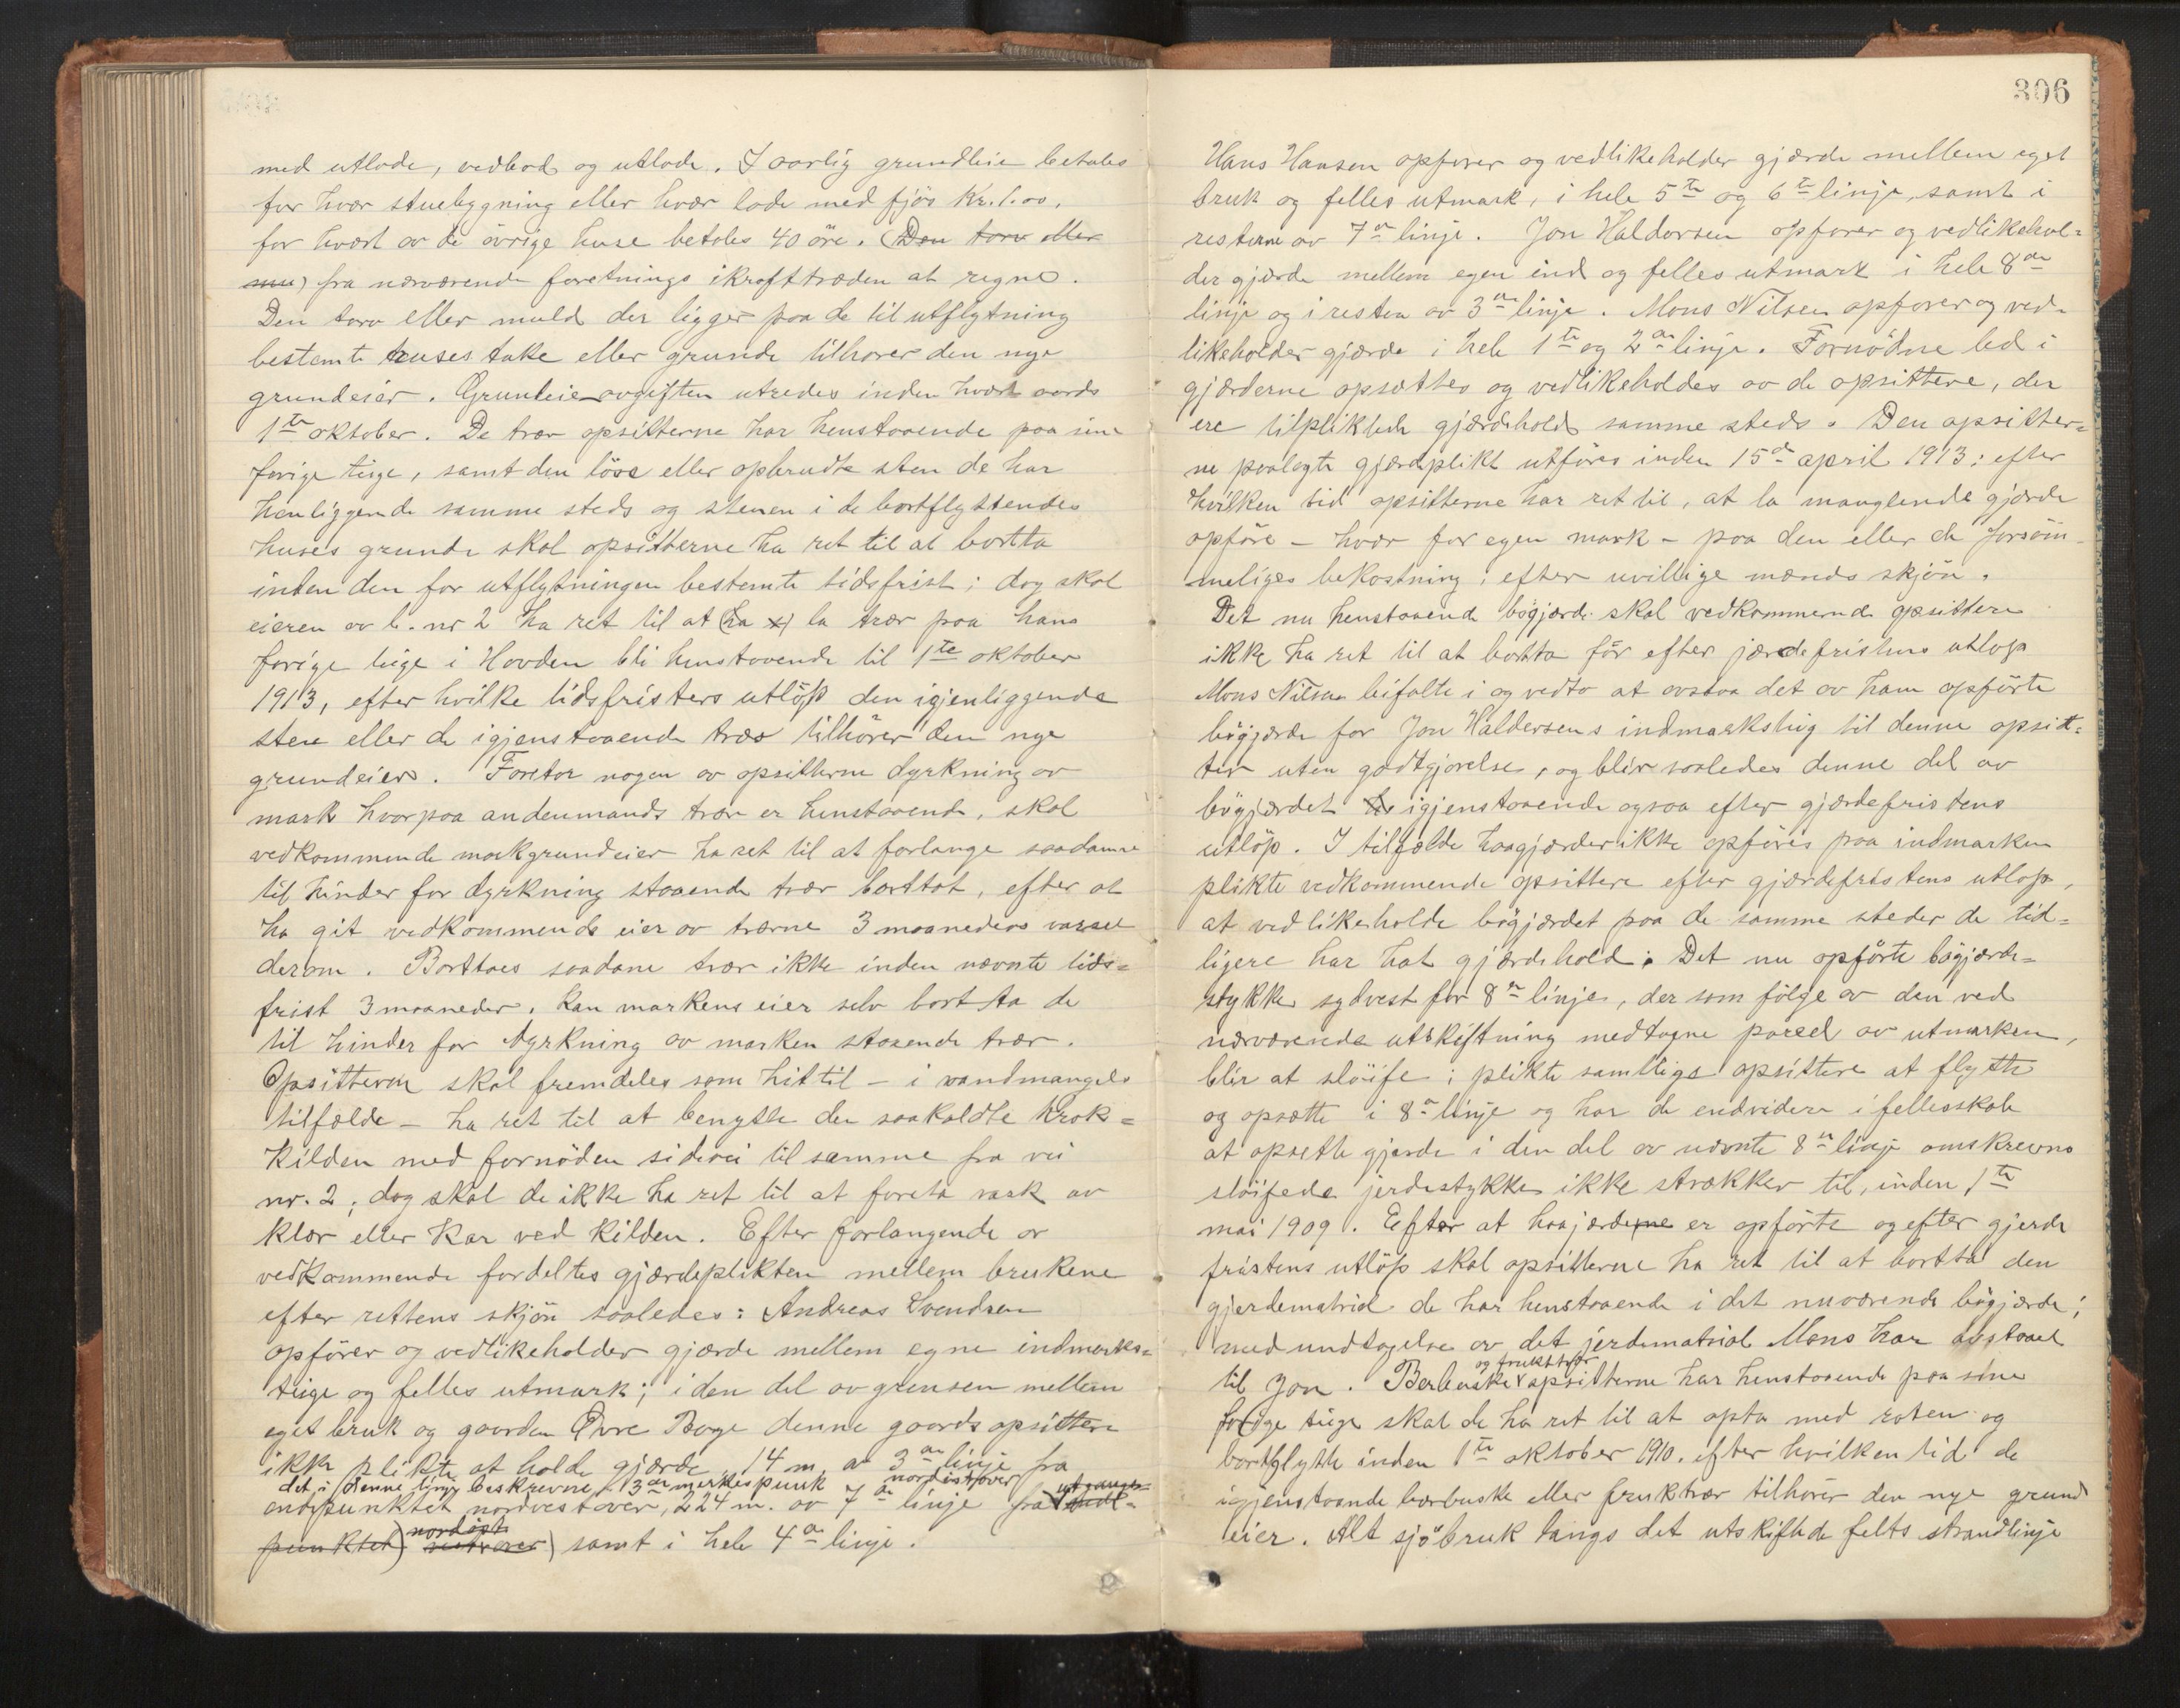 med utlade, vedbod og utlade. I aarlig grundleie betales
for hver stuebygning eller hver lade med fjös Kr. 1.00,
for hvert av de övrige huse betales 40 öre. (Den torv eller
mu) fra nærværende foretnings ikrafttræden at regne.
Den torv eller muld der ligger paa de til utflytning
bestemte huses take eller grunde tilhører den nye
grundeier. Grunleieavgiften utredes inden hvert aards
1ste oktober. De trær opsitterne har henstaaende paa sine
forige teige, samt den löse eller opbrudte sten de har
henliggende samme steds og stenen i de bortflyttendes
huses grunde skal opsitterne ha ret til at bortta
inden den for utflytningen bestemte tidsfrist; dog skal
eieren av b. nr 2 ha ret til at (ha x) la trær paa hans
forige teige i Hovden bli henstaaende til 1ste oktober
1913, efter hvilke tidsfristers utlöp den igjenliggende
sten eller de igjenstaaende træs tilhörer den nye
grundeier. Foretar nogen av opsitterne dyrkning av
mark hvorpaa andenmands trær er henstaaende, skal
vedkommende markgrundeier ha ret til at forlange saadanne
til hinder for dyrkning staaende trær borttat, efter at
ha git vedkommende eier av trærne 3 maaneders varsel
derom. Borttaes saadane trær ikke inden nævnte tids=
frist 3 maaneder, kan markens eier selv bort ta de
til hinder for dyrkning av marken staaende trær.
Opsitterne skal fremdeles som hittil – i vandmangels
tilfælde – ha ret til at benytte den saakaldte Krok=
kilden med fornöden sidevei til samme fra vei
nr. 2; dog skal de ikke ha ret til at foreta vask av
klær eller Kar ved Kilden. Efter forlangende av
vedkommende fordeltes gjærdeplikten mellem brukene
efter rettens skjön saaledes: Andreas Svendsen
opförer og vedlikeholder gjærde mellem egne indmarks=
teige og felles utmark; i den del av grensen mellem
eget bruk og gaarden Övre Boge denne gaards opsittere
ikke plikte at holde gjærde, 14 m. av 3die linje fra
det i denne linje beskrevne 13de merkespunk nordöstover utgangs-
endepunktet nordvestover, 224 m. av 7de linje fra
punktet) nordöst vestover) samt i hele 4de linje.
306
Hans Hansen opfører og vedlikeholder gjærde mellem eget
bruk og felles utmark, i hele 5te og 6te linje, samt i
resterne av 7de linje. Jon Haldorsen opfører og vedlikehol=
der gjærde mellem egen ind og felles utmark i hele 8de
linje og i resten av 3die linje. Mons Nilsen opfører og ved=
likeholder gjærde i hele 1ste og 2den linje. Fornödne led i
gjærderne opsættes og vedlikeholdes av de opsittere, der
ere tilpliktede gjærdehold samme steds. Den opsitter=
ne paalagte gjærdeplikt utföres inden 15de april 1913; efter
hvilken tid opsitterne har ret til, at la manglende gjærde
opföre – hver for egen mark – paa den eller de forsöm-
meliges bekostning; efter uvillige mænds skjön.
Det nu henstaaende bögjærde skal vedkommende opsittere
ikke ha ret til at bortta för efter jærdefristens utlöp
Mons Nilsen bifalte i og vedto at avstaa det av ham opförte
bögjærde for Jon Haldorsens indmarksteig til denne opsit=
ter uten godtgjørelse, og blir saaledes denne del av
bögjærdet igjenstaaende ogsaa efter gjærdefristens
utlöp. I tilfælde haagjærder ikke opföres paa indmarken
plikte vedkommende opsittere efter gjærdefristens utlöp,
at vedlikeholde bögjærdet paa de samme steder de tid=
ligere har hat gjærdehold. Det nu opförte bögjærde=
stykke sydvest for 8de linje, der som fölge av den ved
nærværende utskiftning medtagne parcel av utmarken,
blir at slöife; plikte samtlige opsittere at flytte
og opsætte i 8de linje og har de endvidere i fellesskab
at opsette gjærde i den del av nævnte 8de linje omskrevne
slöifede jerdestykke ikke strækker til, inden 1ste
mai 1909. Efter at haajærderne er opförte og efter gjerde
fristens utlöp skal opsitterne ha ret til at bortta den
gjerdematrial de har henstaaende i det nuværende bögjærde;
med undtagelse av det jerdematrial Mons har avstaaet
til Jon. Berbuske og frukttrær opsitterne har henstaaende paa sine
forige teige skal de ha ret til at opta med roten og
bortflytte inden 1ste oktober 1910. efter hvilken tid de
igjenstaande bærbuske eller fruktrær tilhörer den nye grund
eier. Alt sjöbruk langs det utskiftede felts strandlinje